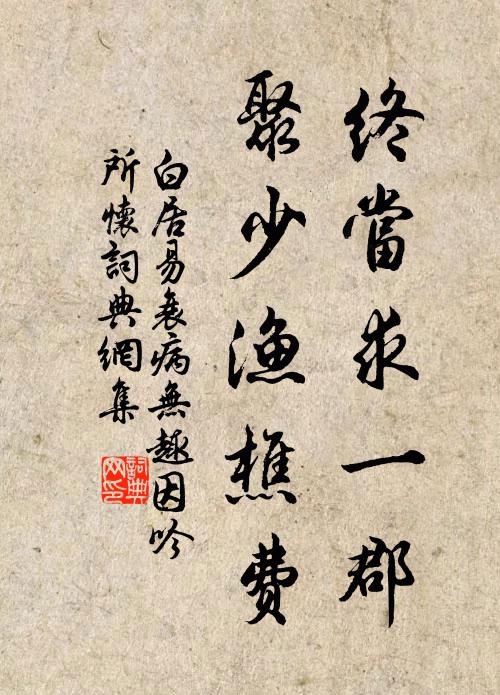 終當求一郡
聚少漁樵費
白居易衰病無趣因吟
所懷詞典網集
詞典
网印